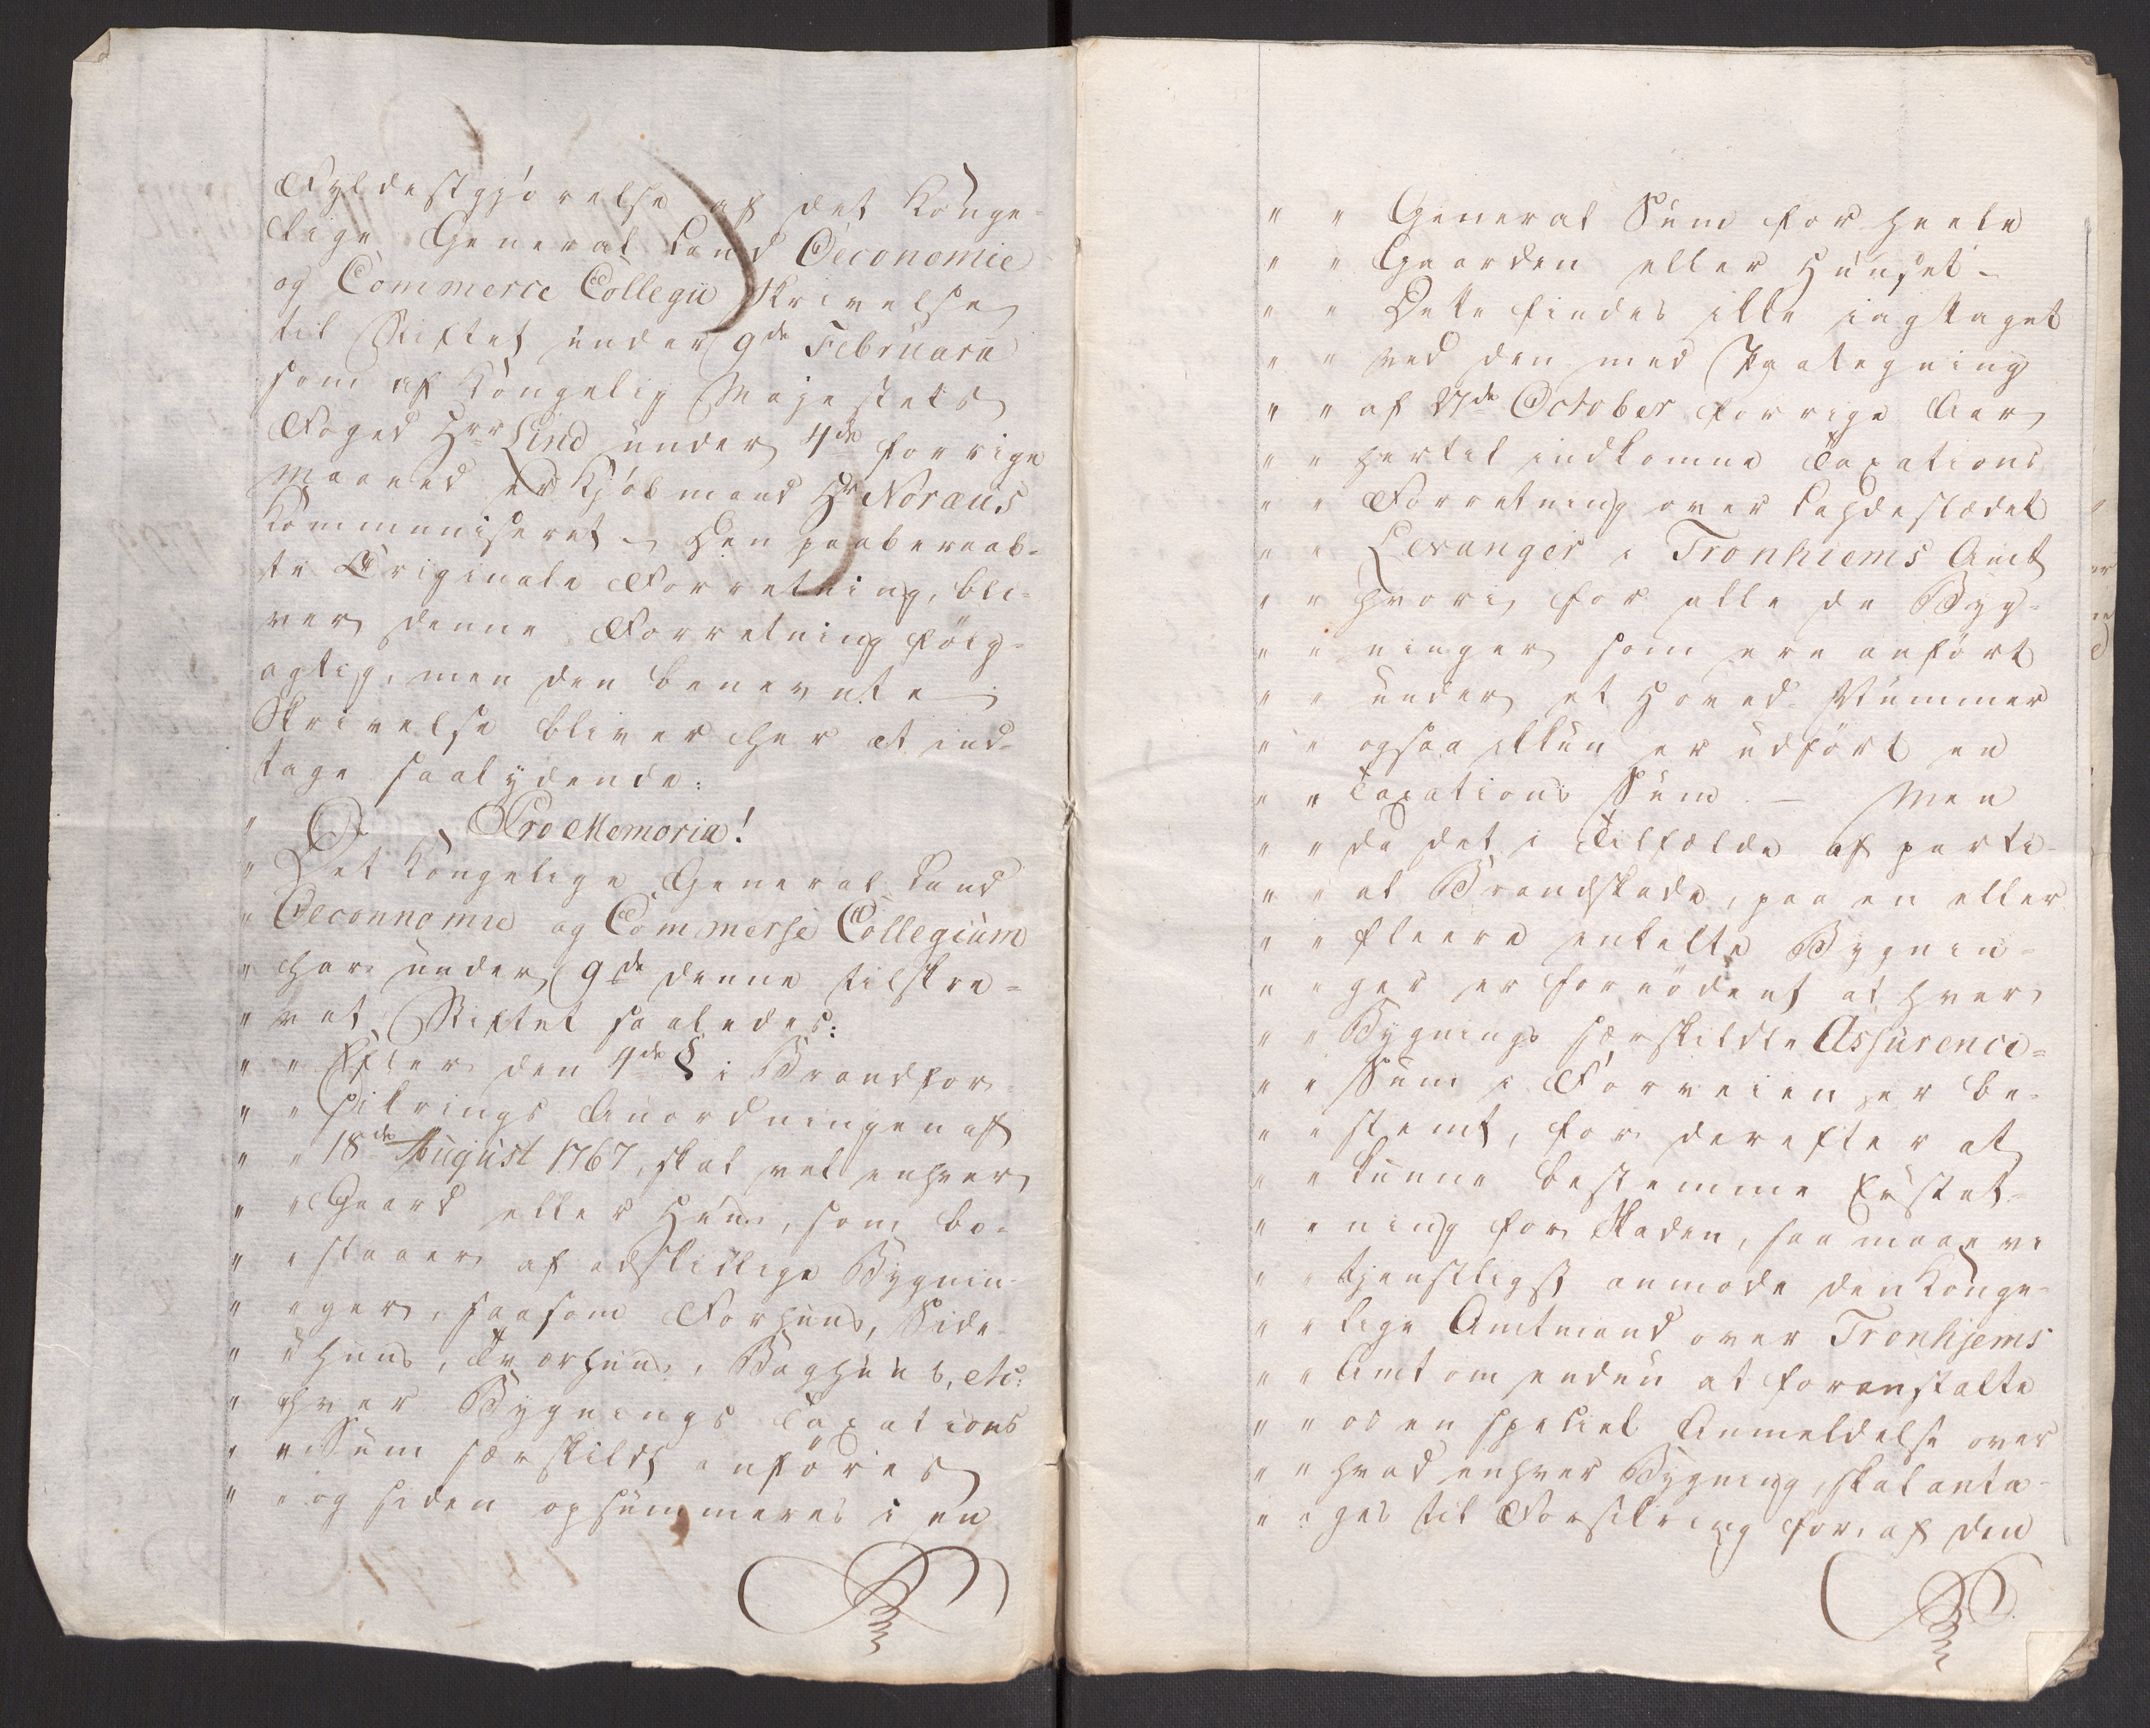 Fyldestgjørelse af det Konge-
lige General Land Oeconomie
og Commerce Collegii Skrivelse
til Stiftet under 9de Februarii
som af Kongelig Majestets
Foged Hrr Lind under 4de forrige
Maaned er Kjøbmand Hr Noræus
Kommuniseret – Den paaberaab-
te Originale Forretning, bli-
ver denne Forretning følg-
agtig, men den benevnte
Skrivelse bliver her at ind-
tage saalydende:
" Pro Memoria!
" Det Kongelige General Land
" Oeconnomie og Commerse Collegium
" har under 9de denne tilskre-
" vet Stiftet saaledes:
" " Efter den 4de § i Brandfor-
" " sikrings Anordningen af
" " 18de August 1767, skal vel enhver
" " Gaard eller Huus, som be-
" " staaer af adskillige Bygnin-
" " ger, saasom Forhuus, Side-
" " huus, Tværhuus, Baghuus, etc:
" " hver Bygnings Taxations
" " Sum særskildt anføres
" " og siden opsummeres i en
" " General Sum for heele
" " Gaarden eller Huuset –
" " Dette findes ikke iagttaget
" " ved den med Paategning
" " af 27de October forrige Aar
" " hertil indkomne Taxations
" " Forretning over Lahdestædet
" " Levanger i Tronhiems Amt
" " hvori for alle de Byg-
" " ninger som ere anført
" " under et Hoved-Nummer
" " ogsaa ikkun er udført en
" " Taxations Sum – Men
" " da det i Tilfælde af parti-
" " al Brandskade, paa en eller
" " fleere enkelte Bygnin-
" " ger er fornødent at hver
" " Bygnings særskildte Assurence-
" " Sum i Forveien er be-
" " stemt, for derefter at
" " kunne bestemme Erstat-
" " ning for Skaden, saa maae vi
" " tjenstligst anmode den Konge-
" " lige Amtmand over Tronhjems
" " Amt om endnu at foranstalte
" " os en speciel Anmeldelse over
" " hvad enhver Bygning, skal anta-
" " ges til Forsikring for, af den